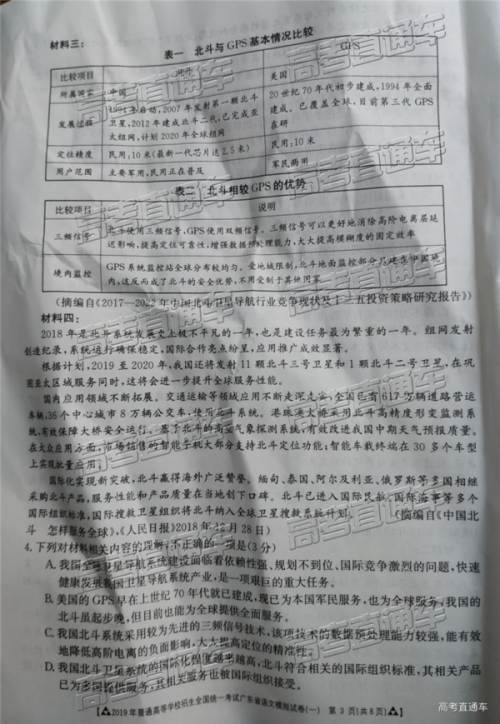 材料三：
表一 北斗与GPS基本情况比较
比较项目 北斗 GPS
所属国家 中国 美国
发展过程 1994年启动，2007年发射第一颗北斗
卫星，2012年建成北斗二代，已完成亚
太组网，计划2020年全球组网
20世纪70年代初步建成，1994年全面
建成。已覆盖全球，目前第三代GPS
在研
定位精度 民用：10米（最新一代芯片达2.5米） 民用：10米
用户范围 主要军用，民用正在普及 军民两用
表二 北斗相较GPS的优势
比较项目 说明
三频信号 北斗使用三频信号，GPS使用双频信号。三频信号可以更好地消除高阶电离层延
迟影响，提高定位可靠性，增强数据预处理能力，大大提高模糊度的固定效率
境内监控 GPS系统监控站全球分布较均匀。受地域限制，北斗地面监控部分只建在中国境
内，这反而成了北斗的安全优势，不用受制于其他国家
（摘编自《2017—2022年中国北斗卫星导航行业竞争现状及十三五投资策略研究报告》）
材料四：
2018年是北斗系统发展史上极不平凡的一年，也是建设任务最为繁重的一年。组网发射
创造纪录，系统运行确保稳定，国际合作亮点纷呈，应用推广成效显著。
根据计划，2019至2020年，我国还将发射11颗北斗三号卫星和1颗北斗二号卫星，在巩
固亚太区域服务同时，这将会进一步提升全球服务性能。
国内应用领域不断拓展。交通运输等领域应用不断走深走实，全国已有617万辆道路营运
车辆，36个中心城市8万辆公交车，使用北斗系统。港珠澳大桥采用北斗高精度形变监测系
统，有效保障大桥安全运行。基于北斗的高空气象探测系统，有效改进我国中期天气预报质量。
在大众应用方面，市场销售的智能手机大部分支持北斗定位功能；智能车载终端在30多个车型
上实现批量应用。
国际化实现突破，北斗赢得海外广泛赞誉。缅甸、泰国、阿尔及利亚、俄罗斯等多国相继
采购北斗产品，服务性能和产品质量在当地创下口碑。北斗已进入国际民航、国际海事等多个
国际组织标准，国际搜救卫星组织将北斗纳入全球卫星搜救系统计划。 （摘编自《中国北
斗 怎样服务全球》，《人民日报》2018年12月28日）
4.下列对材料相关内容的理解，不正确的一项是(3分)
A.我国全球卫星导航系统建设面临着依赖性强、规划不到位、国际竞争激烈的问题，快速
健康发展我国卫星导航系统产业，是一项艰巨的重大任务。
B.美国的GPS早在上世纪70年代就已建成，现已为本国军民服务，也为全球服务，我国的
北斗虽起步晚，但目前也能为全球提供全面服务。
C.我国北斗系统采用较为先进的三频信号技术，该项技术的数据预处理能力较强，能有效
地降低高阶电离的负面影响，大大提高定位的精准性。
D.我国北斗卫星系统的国际化程度越来越高，北斗符合相关的国际组织标准，其相关产品
也获得国际市场的认可，国际组织
2019年普通高等学校招生全国统一考试广东省语文模拟试卷(一) 第3页(共8页)
高考直通车